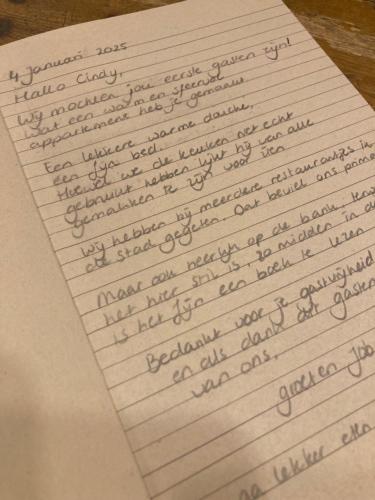 4 Januari 2025
Hallo Cindy,
Wij mochten jou eerste gasten zijn!
Wat een warm en sfeervol
appartement heb je gemaakt.
Een lekkere warme douche,
een fijn bed.
Hoewel we de keuken niet echt
gebruikt hebben lijkt hij van alle
gemakken te zijn voor zien
Wij hebben bij meerdere restaurantjes in
de stad gegeten. Dat beviel ons prima
Maar ook heerlijk op de bank, terw
het hier stil is, zo midden in de
is het fijn een boek te lezen
Bedankt voor je gastvrijheid
en als dank dit gasten
van ons,
groeten Job
lekker eten